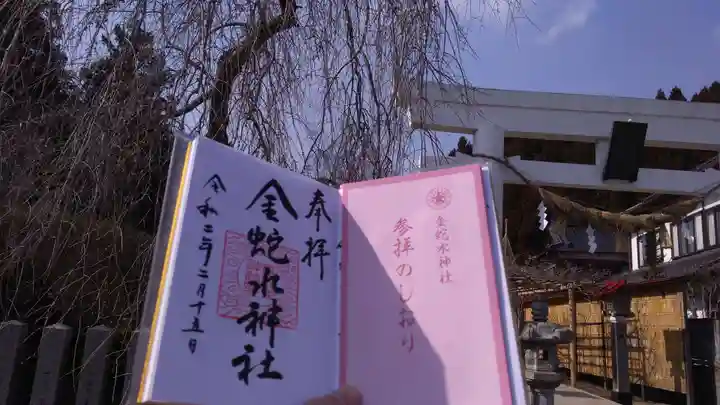 奉拝
金蛇水神社
令和二年二月十五日
金蛇水神社
参拝のしおり